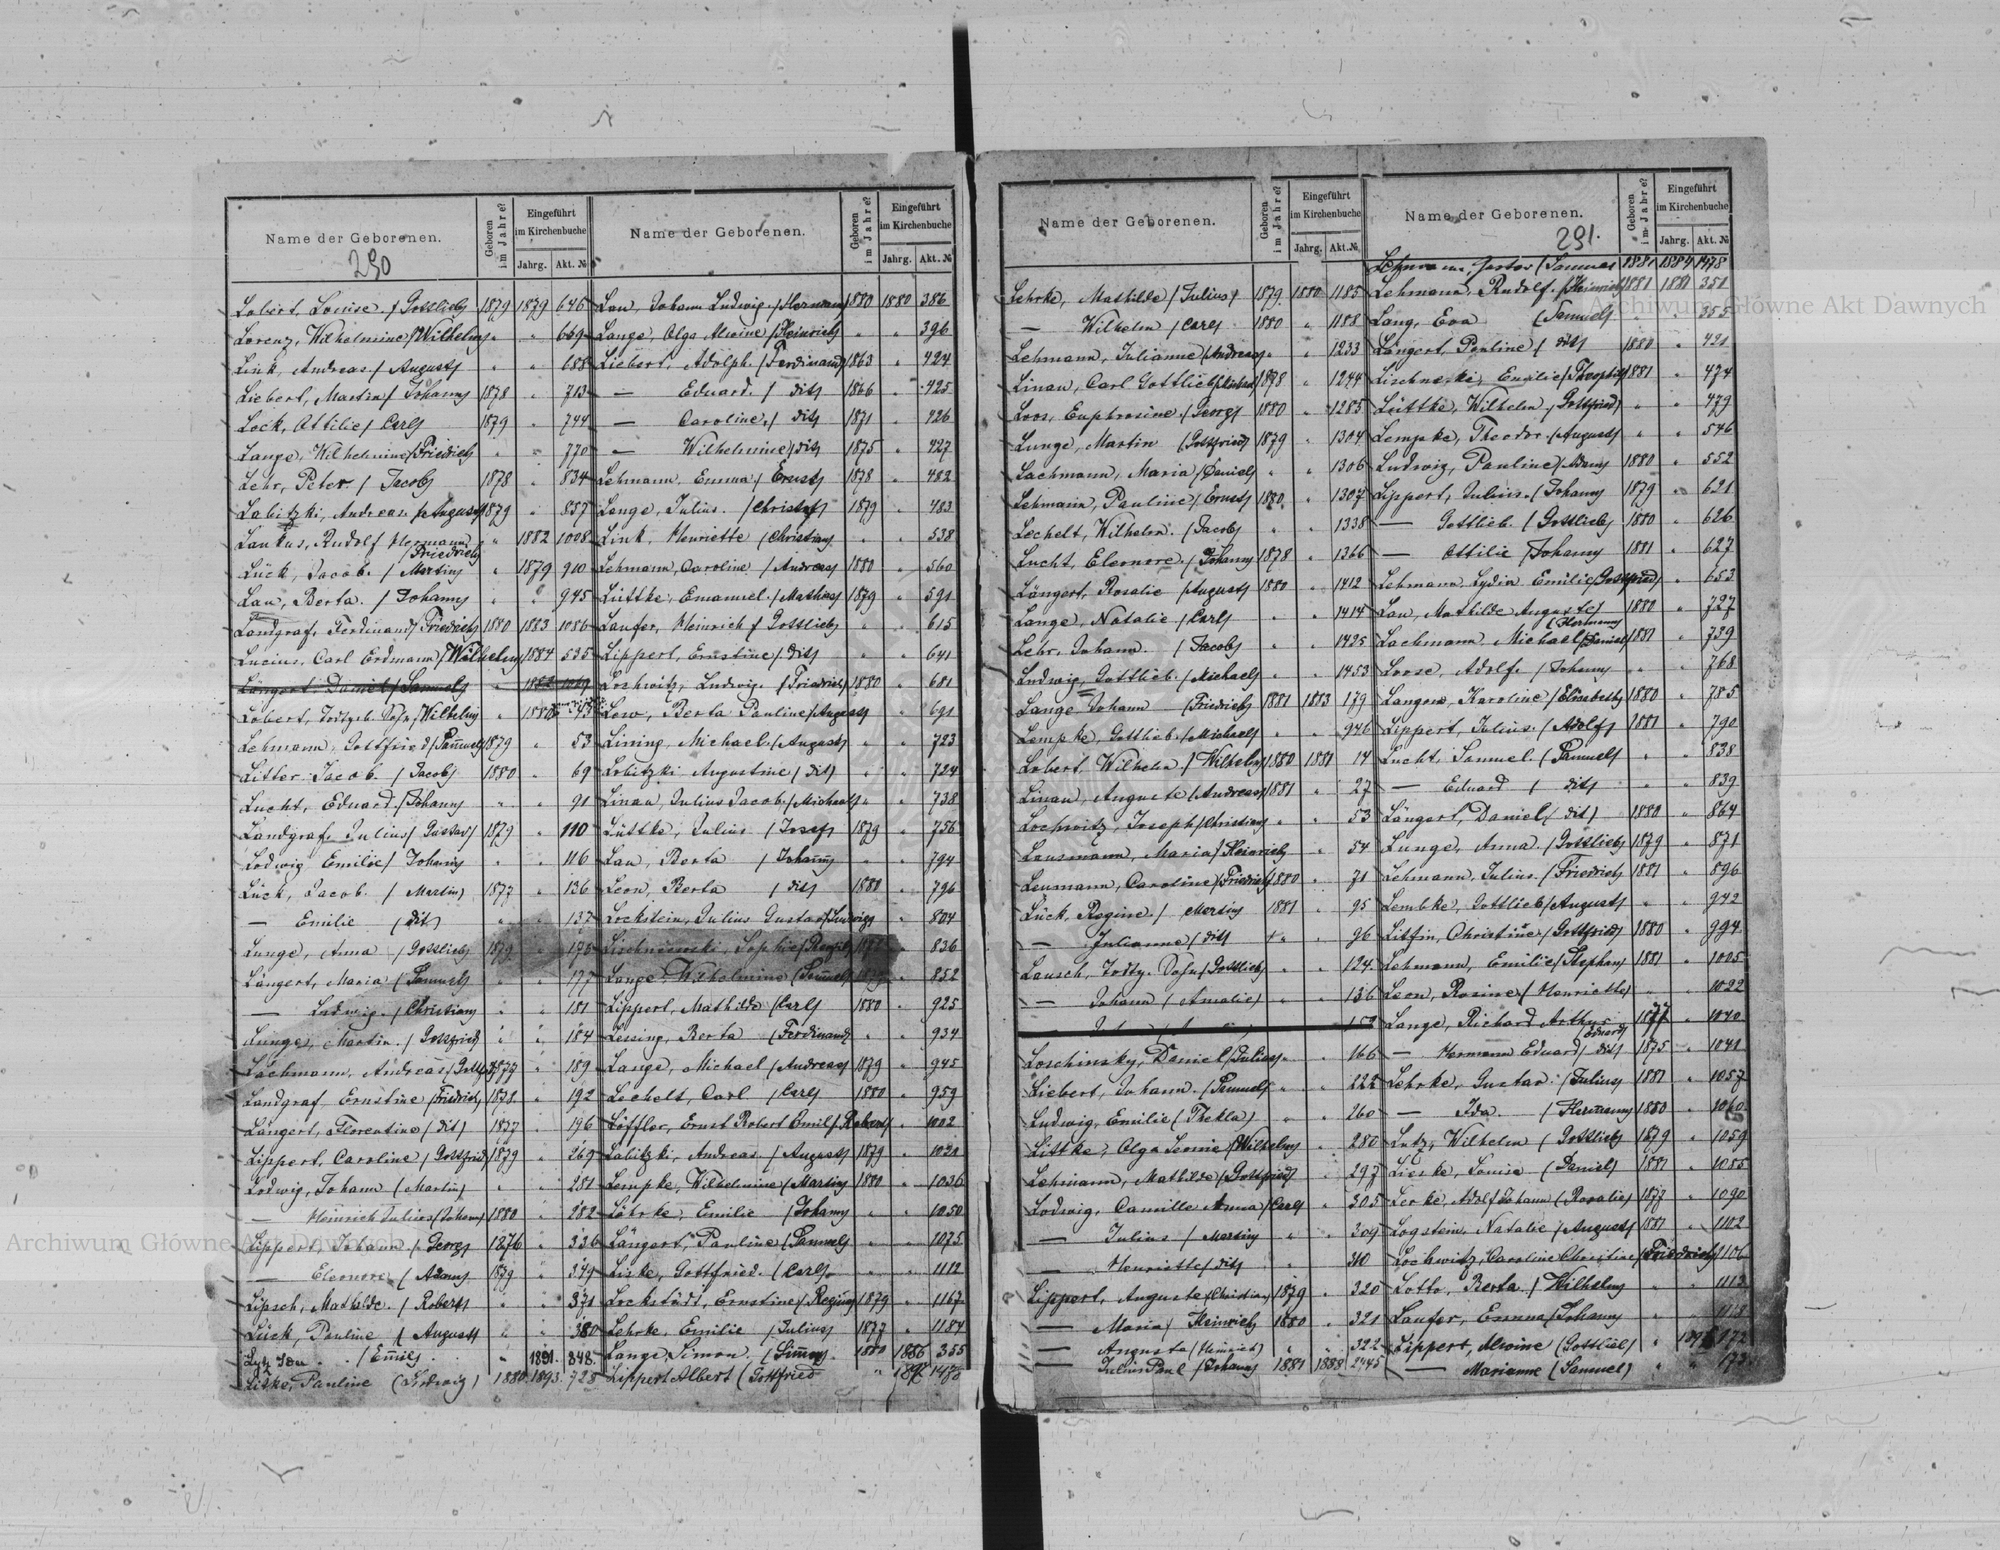 Name der Geborenen.
Geboren im Jahre?
Eingeführt im Kirchenbuche
Jahrg. Akt. №
290
Lobert, Louise / Gottlieb 1879 1879 646
Lorenz, Wilhelmine / Wilhelm " " 669
Link, Andreas / August " " 688
Liebert, Martin / Johann 1878 " 713
Lock, Ottilie / Carl 1879 " 744
Lange, Wilhelmine / Friedrich " " 770
Lehr, Peter / Jacob 1878 " 834
Labitzki, Andreas / August 1879 " 857
Rudolf Hermann / Friedrich " 1882 1008
Lück, Jacob / Martin " 1879 910
Lau, Berta / Johann " " 945
Landgraf, Ferdinand / Friedrich 1880 1883 1086
Lucius, Carl Erdmann / Wilhelm " 1884 535
Längert Daniel / Samuel
Lobert, Todtgeb. Sohn / Wilhelm " 1880
Lehmann, Gottfried / Samuel 1879 " 53
Litter Jacob / Jacob 1880 " 69
Lucht, Eduard / Johann " " 91
Landgraf, Julius / Gustav 1879 " 110
Ludwig Emilie / Johann " " 116
Lück, Jacob / Martin 1877 " 136
— Emilie / dit " " 137
Lunge, Anna / Gottlieb 1879 " 175
Längert, Maria / Samuel " " 177
— Ludwig / Christian " " 181
Lunge, Martin / Gottfried " " 184
Lachmann, Andreas / Gottf. 1877 " 189
Landgraf Ernstine / Friedrich " 192
Längert, Florentine / dit 1877 " 196
Lippert, Caroline / Gottfried 1879 " 269
Ludwig, Johann / Martin " " 281
— Heinrich Julius / Johann 1880 " 282
Lippert, Johann / Georg 1876 " 336
— Eleonore / Adam 1879 " 349
Lipsch, Mathilde / Robert " " 371
Lück, Pauline / August " " 380
Lutz / Emil " 1891. 848.
Liske, Pauline (Ludwig) 1880. 1893. 728
Name der Geborenen.
Geboren im Jahre?
Eingeführt im Kirchenbuche
Jahrg. Akt. №
Lau, Johann Ludwig / Hermann 1880 1880 386
Lange, Olga Alwine / Heinrich " " 396
Liebert, Adolph / Ferdinand 1863 " 424
— Eduard / dit 1866 " 425
— Caroline / dit 1871 " 426
— Wilhelmine / dit 1875 " 427
Lehmann, Emma / Ernst 1878 " 482
Lange, Julius / Christof 1879 " 483
Link, Henriette / Christian " " 538
Lehmann, Caroline / Andreas 1880 " 560
Lüttke, Emanuel / Mathias 1879 " 591
Laufer, Heinrich / Gottlieb " " 615
Lippert, Ernstine / dit " " 641
Lochwitz, Ludwig / Friedrich 1880 " 681
Low, Berta Pauline / August " " 691
Lining, Michael / August " " 723
Lobitzki Augustine / dit " " 724
Linau, Julius Jacob / Michael " " 738
Lüttke, Julius / Josef 1879 " 756
Lau, Berta / Johann " " 794
Leon, Berta / dit 1880 " 796
Lockstein, Julius Gustav / Ludwig " 804
Lischnewski, Sophie " 836
Lange, Wilhelmine / Samuel " 852
Lippert, Mathilde / Carl 1880 " 925
Lessing, Berta / Ferdinand " " 934
Lange, Michael / Andreas 1879 " 945
Lechelt, Carl / Carl 1880 " 959
Löffler, Ernst Robert Emil / Robert " 1002
Labitzki, Andreas / August 1879 "
Lempke, Wilhelmine / Martin 1880 " 1036
Löhrke, Emilie / Johann " " 1050
Längert, Pauline / Samuel " " 1075
Liske, Gottfried / Carl " " 1112
Lockstädt, Ernstine / Regina 1879 " 1167
Lehrke, Emilie / Julius 1877 " 1184
Lange, Simon / Simon 1880 1886 355
Lippert Albert (Gottfried "
Name der Geborenen.
Geboren im Jahre?
Eingeführt im Kirchenbuche
Jahrg. Akt. №
Lehrke, Mathilde / Julius 1879 1880 1185
— Wilhelm / Carl 1880 " 1188
Lehmann, Julianne / Andreas " " 1233
Linau, Carl Gottlieb / Michael 1878 " 1244
Loos, Euphrosine / Georg 1880 " 1285
Lunge, Martin / Gottfried 1879 " 1304
Lachmann, Maria / Daniel " " 1306
Lehmann, Pauline / Ernst 1880 " 1307
Lechelt, Wilhelm / Jacob " " 1338
Lucht, Eleonore / Johann 1878 " 1366
Längert, Rosalie / August 1880 " 1412
Lange, Natalie / Carl " " 1414
Lehr, Johann / Jacob " " 1425
Ludwig, Gottlieb / Michael " " 1453
Lange Johann / Friedrich 1881 1883 179
Lempke, Gottlieb / Michael " " 946
Lobert, Wilhelm / Wilhelm 1880 1881 14
Linau, Auguste / Andreas 1881 " 27
Lochwitz, Joseph / Christian " " 53
Lausmann, Maria / Heinrich " 54
Leumann, Caroline / Friedrich 1880 " 71
Lück, Regine / Martin 1881 " 95
— Julianne / dit " " 96
Lausch, Todtg. Sohn / Gottlieb " " 124
— Johann / Amalie " " 136
Loschinsky, Daniel / Julius " " 166
Liebert, Johann / Samuel " " 222
Ludwig, Emilie (Thekla) " " 260
Littke, Olga / Wilhelm " 280
Lehmann, Mathilde / Gottfried " 297
Ludwig, Camille Anna / Carl " 305
— Julius / Martin " " 309
— Henriette / dit " " 310
Lippert, Auguste / Christian 1879 " 320
— Maria / Heinrich 1880 " 321
— Augusta (Heinrich) " " 322
Julius Paul / Johann 1881 1888 2445
Name der Geborenen.
Geboren im Jahre?
Eingeführt im Kirchenbuche
Jahrg. Akt. №
291.
Lehmann, Gustav / Samuel 1881 1884 1478
Lehmann, Rudolf / Heinrich 1881 1881 351
Lang, Eva / Samuel " " 355
Längert, Pauline / dit 1880 " 421
Lischneski, Emilie / Theophil 1881 " 474
Lüttke, Wilhelm / Gottfried " " 479
Lempke, Theodor / August " " 546
Ludwig, Pauline / Adam 1880 " 552
Lippert, Julius / Johann 1879 " 621
— Gottlieb / Gottlieb 1880 " 626
— Ottilie / Johann 1881 " 627
Lehmann Lydia Emilie / Gottfried " 653
Lau, Mathilde Auguste / Hermann 1880 " 727
Lachmann Michael / Daniel 1881 " 739
Loose, Adolf / Johann " " 768
Karoline / Elisabeth 1880 " 785
Lippert, Julius / Adolf 1881 " 790
Lucht, Samuel / Samuel " " 838
— Eduard / dit " " 839
Längert, Daniel / dit 1880 " 864
Lunge, Anna / Gottlieb 1879 " 871
Lehmann, Julius / Friedrich 1881 " 896
Lembke, Gottlieb / August " " 942
Litfin, Christine / Gottfried 1880 " 994
Lehmann, Emilie / Stephan 1881 " 1005
Leon, Rosine / Henriette " " 1022
Lange, Richard Arthur / Eduard 1877 " 1040
— Hermann Eduard / dit 1875 " 1041
Lehrke, Gustav / Julius 1881 " 1057
— Ida / Hermann 1880 " 1060
Lutz, Wilhelm / Gottlieb 1879 " 1059
Lieske, Louise / Daniel 1881 " 1085
Lerke, Adolf Johann (Rosalie) 1877 " 1090
Logstein, Natalie / August 1881 " 1102
Lochwitz, Caroline Christine / Friedrich 1106
Lotto, Berta / Wilhelm " " 1112
Laufer, Emma / Johann " "
Lippert, Alwine (Gottlieb) " 172
— Marianne (Samuel) " " 173
Archiwum Główne Akt Dawnych
Archiwum Główne Akt Dawnych